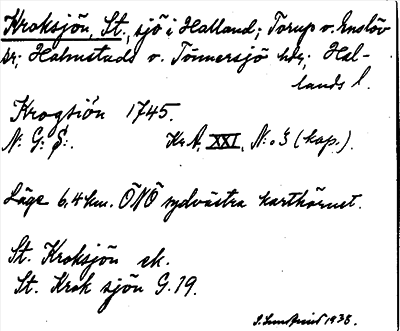 Kroksjön, St., sjö i Halland; Torup o. Enslöv
sr; Halmstads o. Tönnersjö hdr; Hal-
lands l.
Krogsiön 1745.
N: G: S:. Kr.A. XXI. N:o 3 (kop.).
Läge 6,4 km. ÖNÖ sydvästra karthörnet.
St. Kroksjön ek.
St. Krok sjön G. 19.
1938.